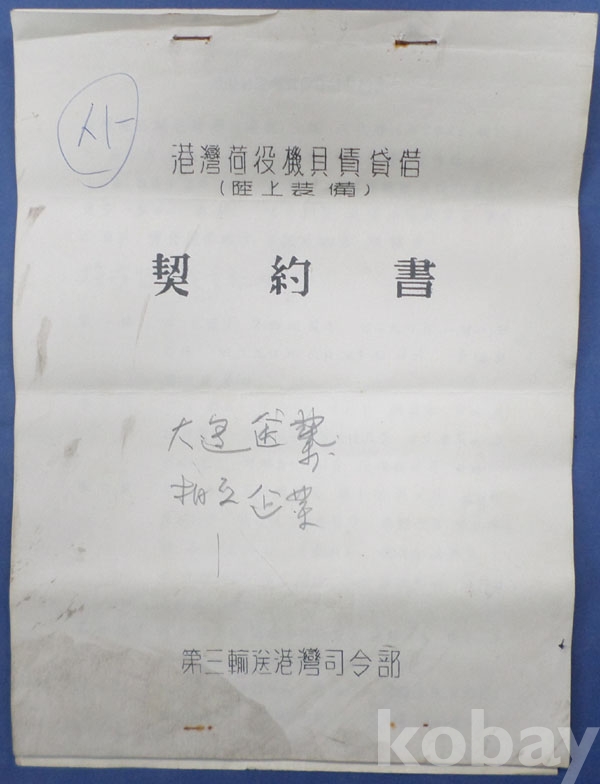 사
港灣荷役機具賃貸借
(陸上装備)
契約書
大運
企業
第三輸送港灣司令部
kobay